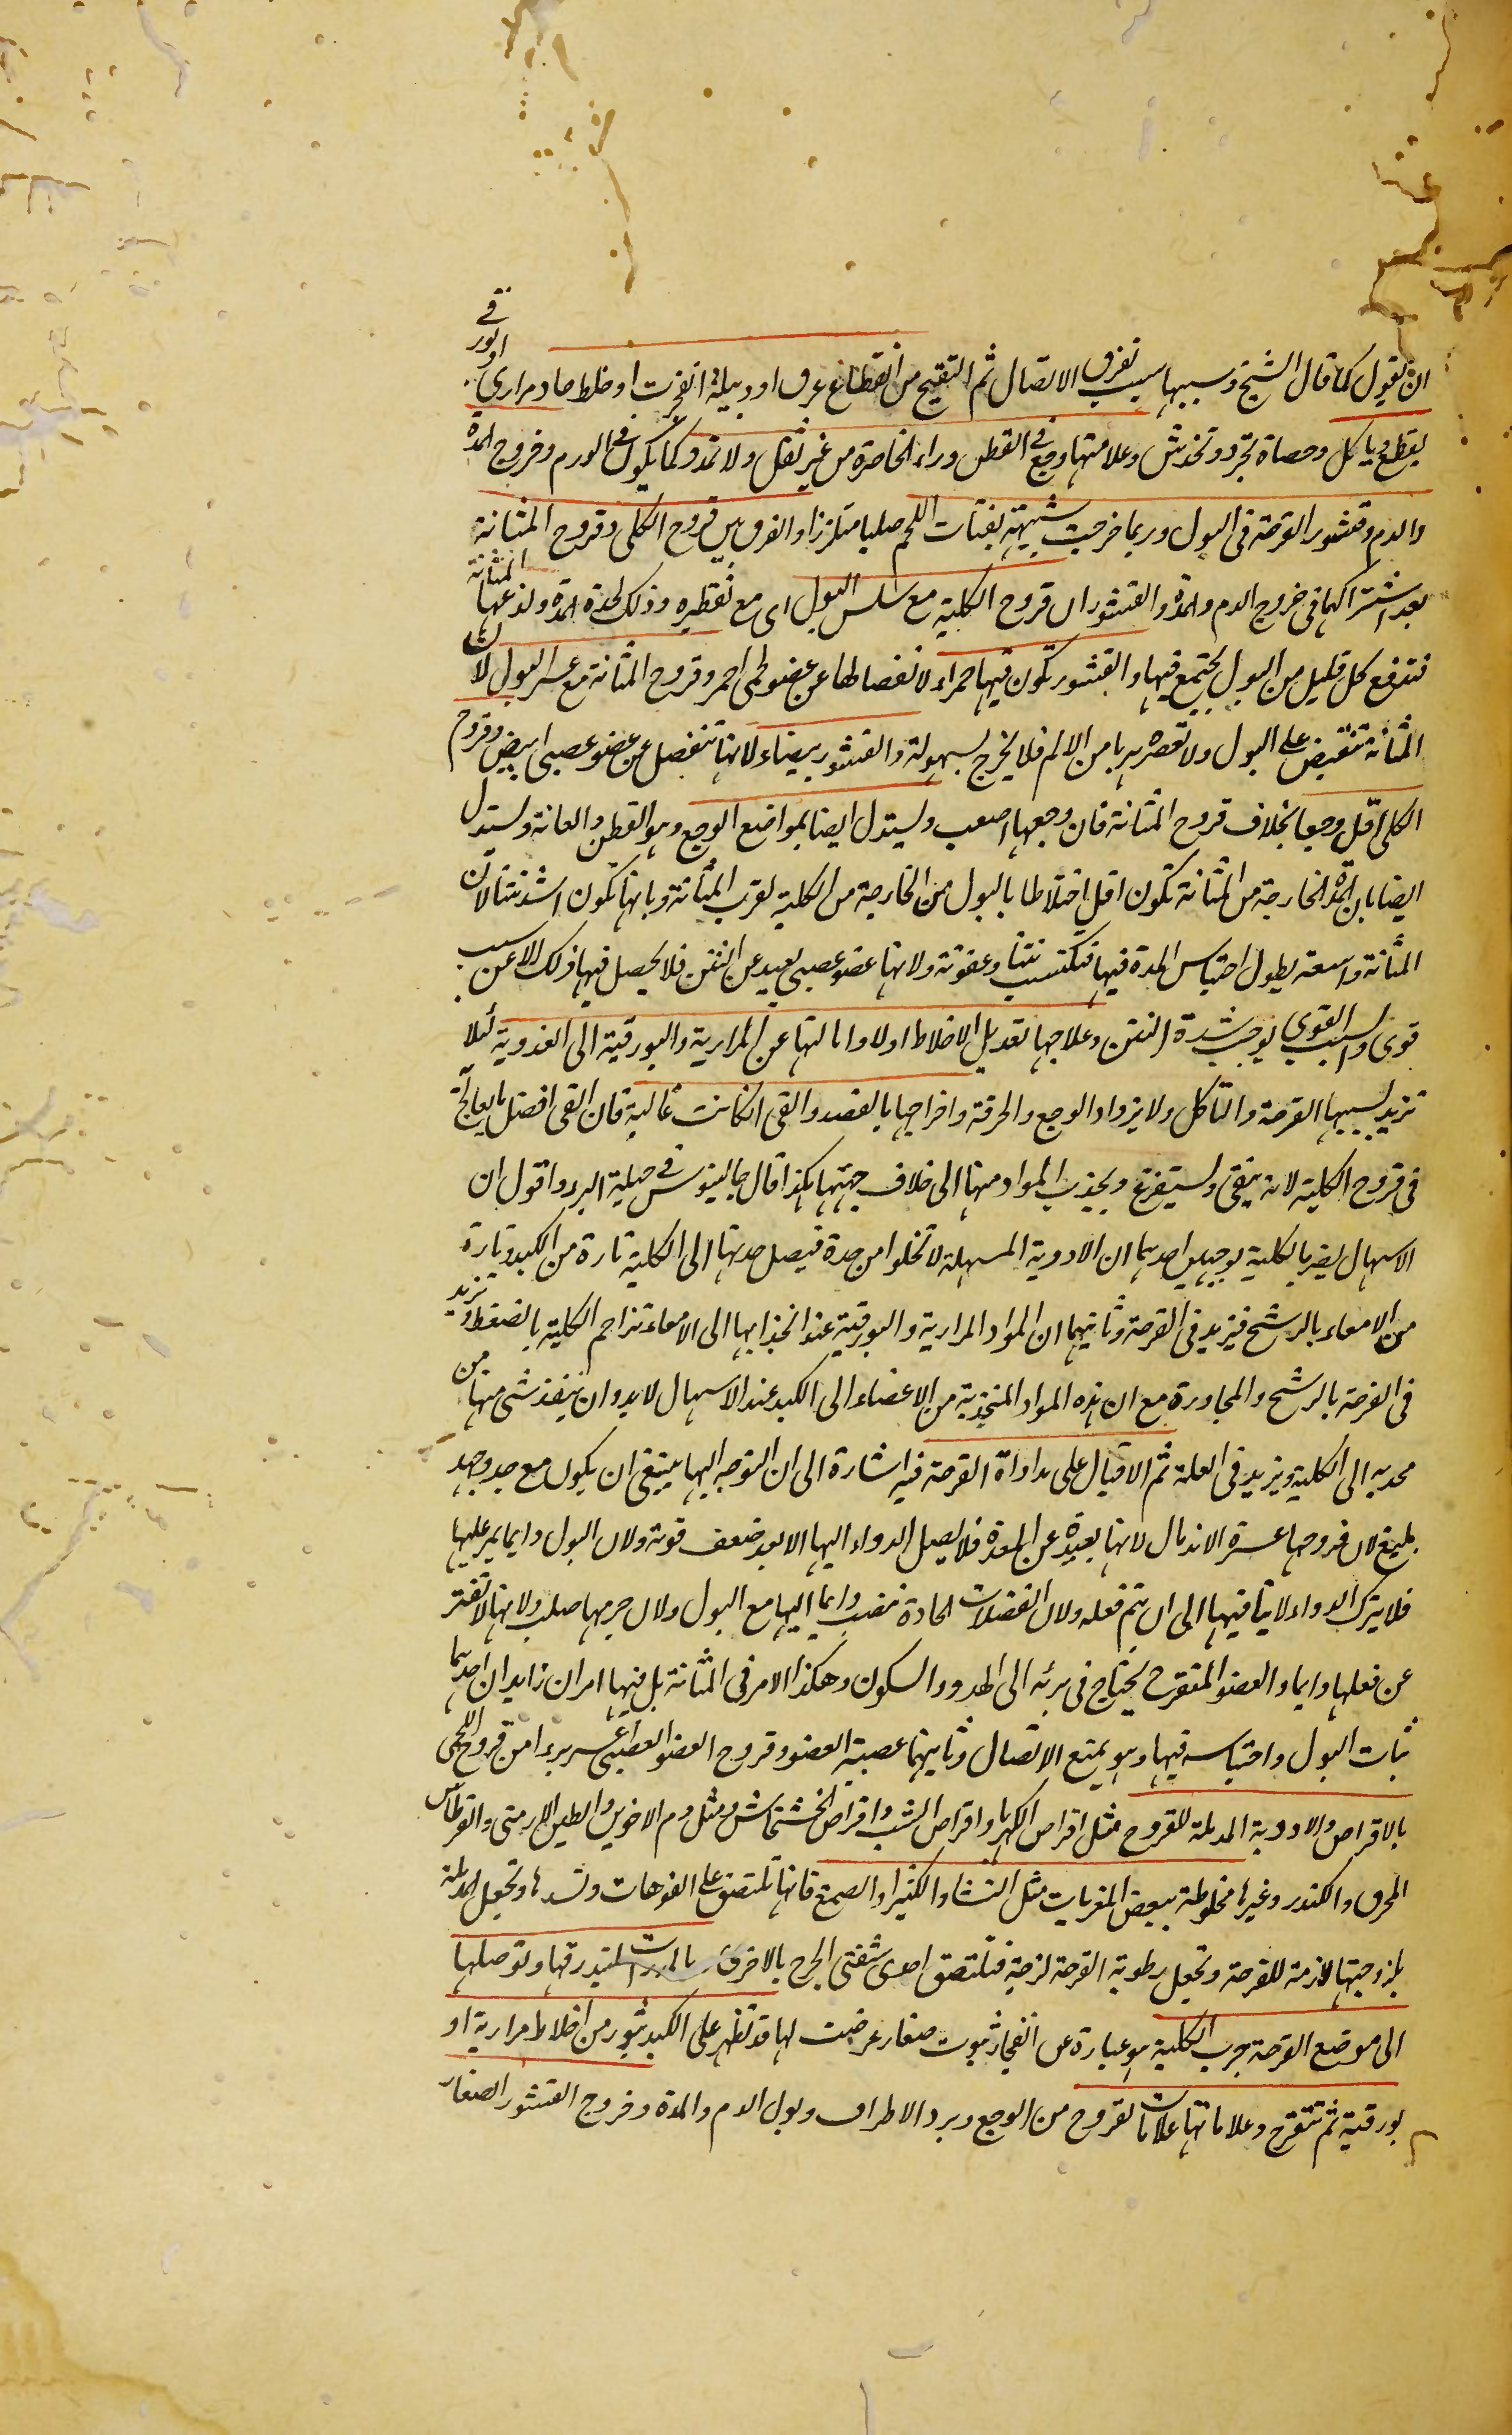 ان نقول كما قال الشيخ وسببها سبب تفرق الاتصال ثم التقيح من انقطاع عرق او دبيلة انفجرت او خلط حاد مراري او بورقي
يقطع وياكل وحصاة تجرد وتخدش وعلامتها وجع في القطن وراء الخاصرة من غير ثقل ولا تمدد كما يكون في الورم وخروج المدة
والدم وقشور القرحة في البول وربما خرجت شبيهة بفتات اللحم صلبا متلززا والفرق بين قروح الكلى وقروح المثانة
بعد اشتراكهما في خروج الدم والمدة والقشور ان قروح الكلية مع سلس البول اى مع تقطيره وذلك لحدة المدة ولذعها المثانة
فتدفع كل قليل من البول يجتمع فيها والقشور تكون فيها حمراء لانفصالها عن عضو لحمى احمر وقروح المثانة مع عسر البول لان
المثانة تنقبض على البول ولا تعصره هربا من الالم فلا يخرج بسهولة والقشور بيضاء لانها تنفصل عن عضو عصبى ابيض وقروح
الكلى اقل وجعا بخلاف قروح المثانة فان وجعها اصعب ويستدل ايضا بمواضع الوجع وهو القطن والعانة ويستدل
ايضا بان المدة الخارجة من المثانة تكون اقل اختلاطا بالبول من الخارجة من الكلية لقرب المثانة وبانها تكون اشد نتنا لان
المثانة واسعة يطول احتباس المدة فيها فتكتسب نتنا وعفونة ولانها عضو عصبى بعيد عن النتن فلا يحصل فيها ذلك الا عن سبب
قوى والسبب القوى يوجب شدة النتن وعلاجها تعديل الاخلاط اولا وامالتها عن المرارية والبورقية الى العذوبة لئلا
تزيد بسببها القرحة والتاكل ولا يزداد الوجع والحرقة واخراجها بالفصد والقى ان كانت غالبة فان القى افضل ما يعالج به
في قروح الكلية لانه ينقى ويستفرغ ويجذب المواد منها الى خلاف جهتها هكذا قال جالينوس في حيلة البرء واقول ان
الاسهال يضر بالكلية بوجهين احدهما ان الادوية المسهلة لا تخلوا من حدة فيصل حدتها الى الكلية تارة من الكبد وتارة
من الامعاء بالرشح فيزيد في القرحة وثانيهما ان المواد المرارية والبورقية عند انجذابها الى الامعاء تزاحم الكلية بالضغط وتزيد
في القرحة بالرشح والمجاورة مع ان هذه المواد المنجذبة من الاعضاء الى الكبد عند الاسهال لابد وان ينفذ شى منها من
محدبه الى الكلية ويزيد في العلة ثم الاقبال على مداواة القرحة فيه اشارة الى ان التوجه اليها ينبغى ان يكون مع جد وجهد
بليغ لان قروحها عسرة الاندمال لانها بعيدة عن المعدة فلا يصل الدواء اليها الا بعد ضعف قوته ولان البول دايما يمر عليها
فلا يترك الدواء لابثا فيها الى ان يتم فعله ولان الفضلات الحادة تنصب دايما اليها مع البول ولان جرمها صلب ولانها لا تفتر
عن فعلها دايما والعضو المتقرح يحتاج في برئه الى الهدو والسكون وهكذا الامر في المثانة بل فيها امران زايدان احدهما
ثبات البول واحتباسه فيها وهو يمنع الاتصال وثانيهما عصبية العضو وقروح العضو العصبى اعسر برءا من قروح اللحمى
بالاقراص والادوية المدملة للقروح مثل اقراص الكهربا واقراص الشب واقراص الخشخاش ومثل دم الاخوين والطين الارمنى والقرطاس
المحرق والكندر وغيرها مخلوطة ببعض المغريات مثل النشا والكثيرا والصمغ فانها تلتصق على الفوهات وتسدها وتجعل المدملة
بلزوجتها لازمة للقرحة وتجعل رطوبة القرحة لزجة فتلتصق احدى شفتى الجرح بالاخرى بالمدرات لتبدرقها وتوصلها
الى موضع القرحة جرب الكلية هو عبارة عن انفجار بثور صغار عرضت لها قد تظهر على الكبد بثور من اخلاط مرارية او
بورقية ثم تتقرح وعلاماتها علامات القروح من الوجع وبرد الاطراف وبول الدم والمدة وخروج القشور الصغار